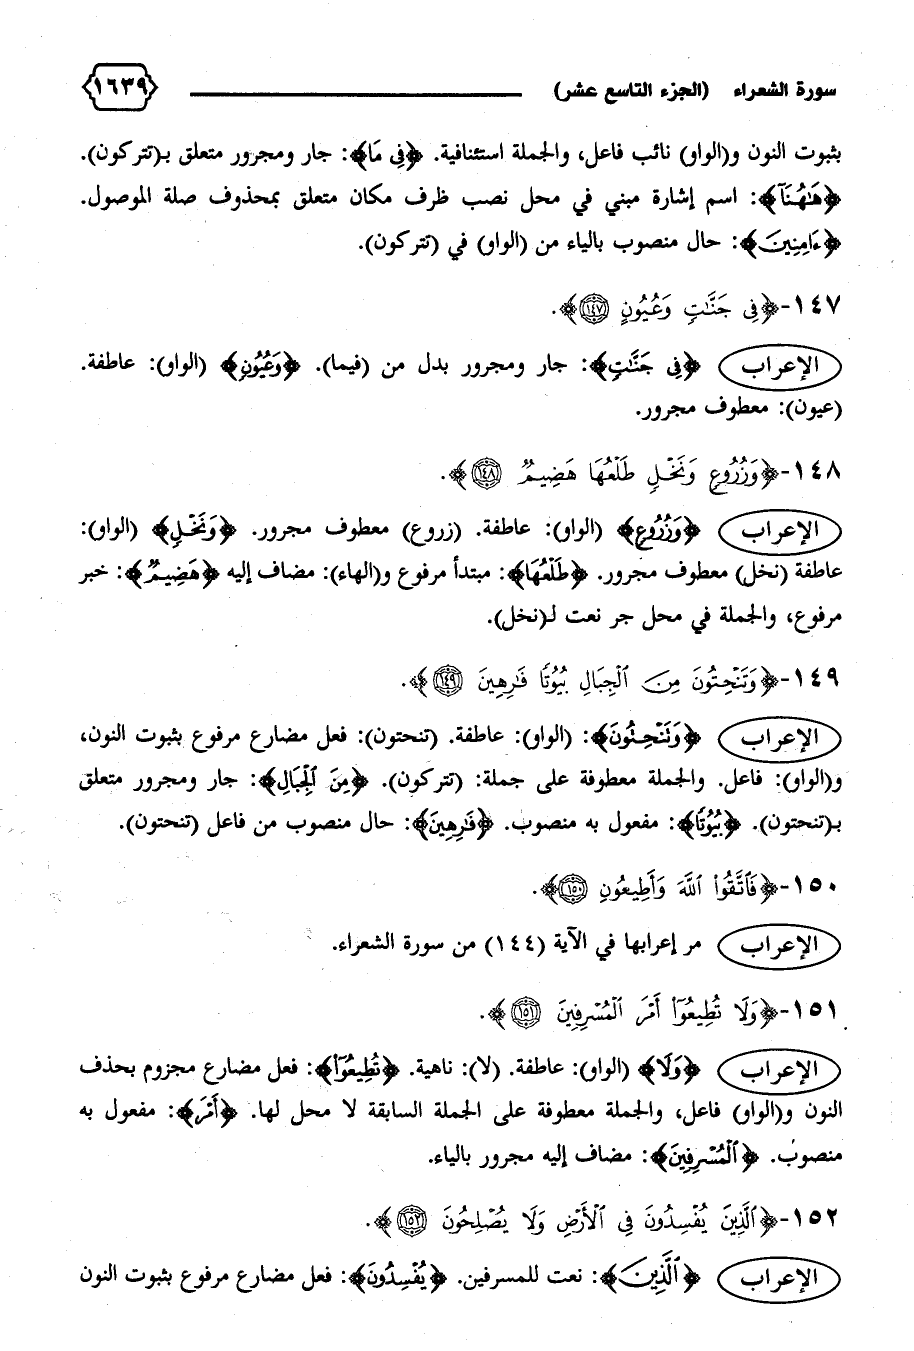 سورة الشعراء (الجزء التاسع عشر) ١٦٣٩
بثبوت النون و(الواو) نائب فاعل، والجملة استئنافية. ﴿فِي مَا﴾: جار ومجرور متعلق بـ(تتركون).
﴿هَٰهُنَآ﴾: اسم إشارة مبني في محل نصب ظرف مكان متعلق بمحذوف صلة الموصول.
﴿ءَامِنِينَ﴾: حال منصوب بالياء من (الواو) في (تتركون).
١٤٧-﴿فِي جَنَّٰتٍ وَعُيُونٍ ١٤٧﴾.
الإعراب ﴿فِي جَنَّٰتٍ﴾: جار ومجرور بدل من (فيما). ﴿وَعُيُونٍ﴾ (الواو): عاطفة.
(عيون): معطوف مجرور.
١٤٨-﴿وَزُرُوعٍ وَنَخْلٍ طَلْعُهَا هَضِيمٌ ١٤٨﴾.
الإعراب ﴿وَزُرُوعٍ﴾ (الواو): عاطفة. (زروع) معطوف مجرور. ﴿وَنَخْلٍ﴾ (الواو):
عاطفة (نخل) معطوف مجرور. ﴿طَلْعُهَا﴾: مبتدأ مرفوع و(الهاء): مضاف إليه ﴿هَضِيمٌ﴾: خبر
مرفوع، والجملة في محل جر نعت لـ(نخل).
١٤٩-﴿وَتَنْحِتُونَ مِنَ ٱلْجِبَالِ بُيُوتًا فَٰرِهِينَ ١٤٩﴾.
الإعراب ﴿وَتَنْحِتُونَ﴾: (الواو): عاطفة. (تنحتون): فعل مضارع مرفوع بثبوت النون،
و(الواو): فاعل. والجملة معطوفة على جملة: (تتركون). ﴿مِنَ ٱلْجِبَالِ﴾: جار ومجرور متعلق
بـ(تنحتون). ﴿بُيُوتًا﴾: مفعول به منصوب. ﴿فَٰرِهِينَ﴾: حال منصوب من فاعل (تنحتون).
١٥٠-﴿فَٱتَّقُوا۟ ٱللَّهَ وَأَطِيعُونِ ١٥٠﴾.
الإعراب مر إعرابها في الآية (١٤٤) من سورة الشعراء.
١٥١-﴿وَلَا تُطِيعُوٓا۟ أَمْرَ ٱلْمُسْرِفِينَ ١٥١﴾.
الإعراب ﴿وَلَا﴾ (الواو): عاطفة. (لا): ناهية. ﴿تُطِيعُوٓا۟﴾: فعل مضارع مجزوم بحذف
النون و(الواو) فاعل، والجملة معطوفة على الجملة السابقة لا محل لها. ﴿أَمْرَ﴾: مفعول به
منصوب. ﴿ٱلْمُسْرِفِينَ﴾: مضاف إليه مجرور بالياء.
١٥٢-﴿ٱلَّذِينَ يُفْسِدُونَ فِي ٱلْأَرْضِ وَلَا يُصْلِحُونَ ١٥٢﴾.
الإعراب ﴿ٱلَّذِينَ﴾: نعت للمسرفين. ﴿يُفْسِدُونَ﴾: فعل مضارع مرفوع بثبوت النون